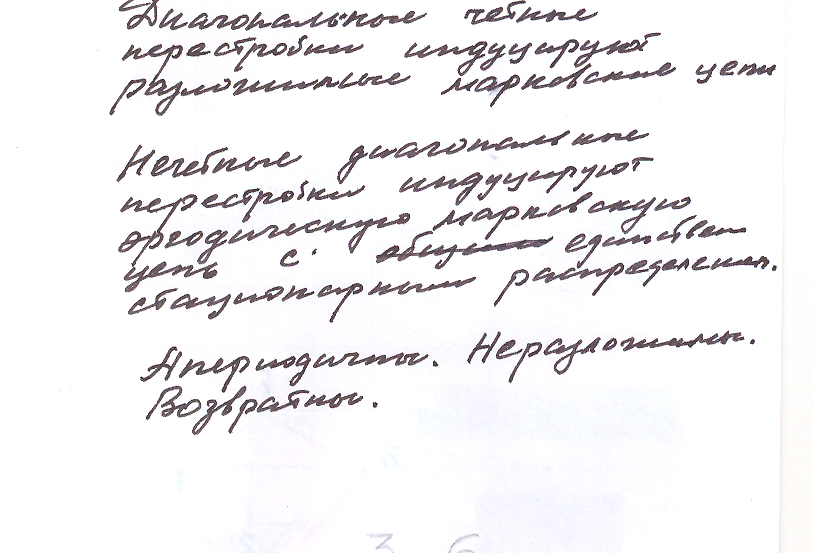 Диагональные четные
перестройки индуцируют
разложимые марковские цепи
Нечетные диагональные
перестройки индуцируют
эргодическую марковскую
цепь с общим единствен
стационарным распределением.
Апериодичны. Неразложимы.
Возвратны.
3 6